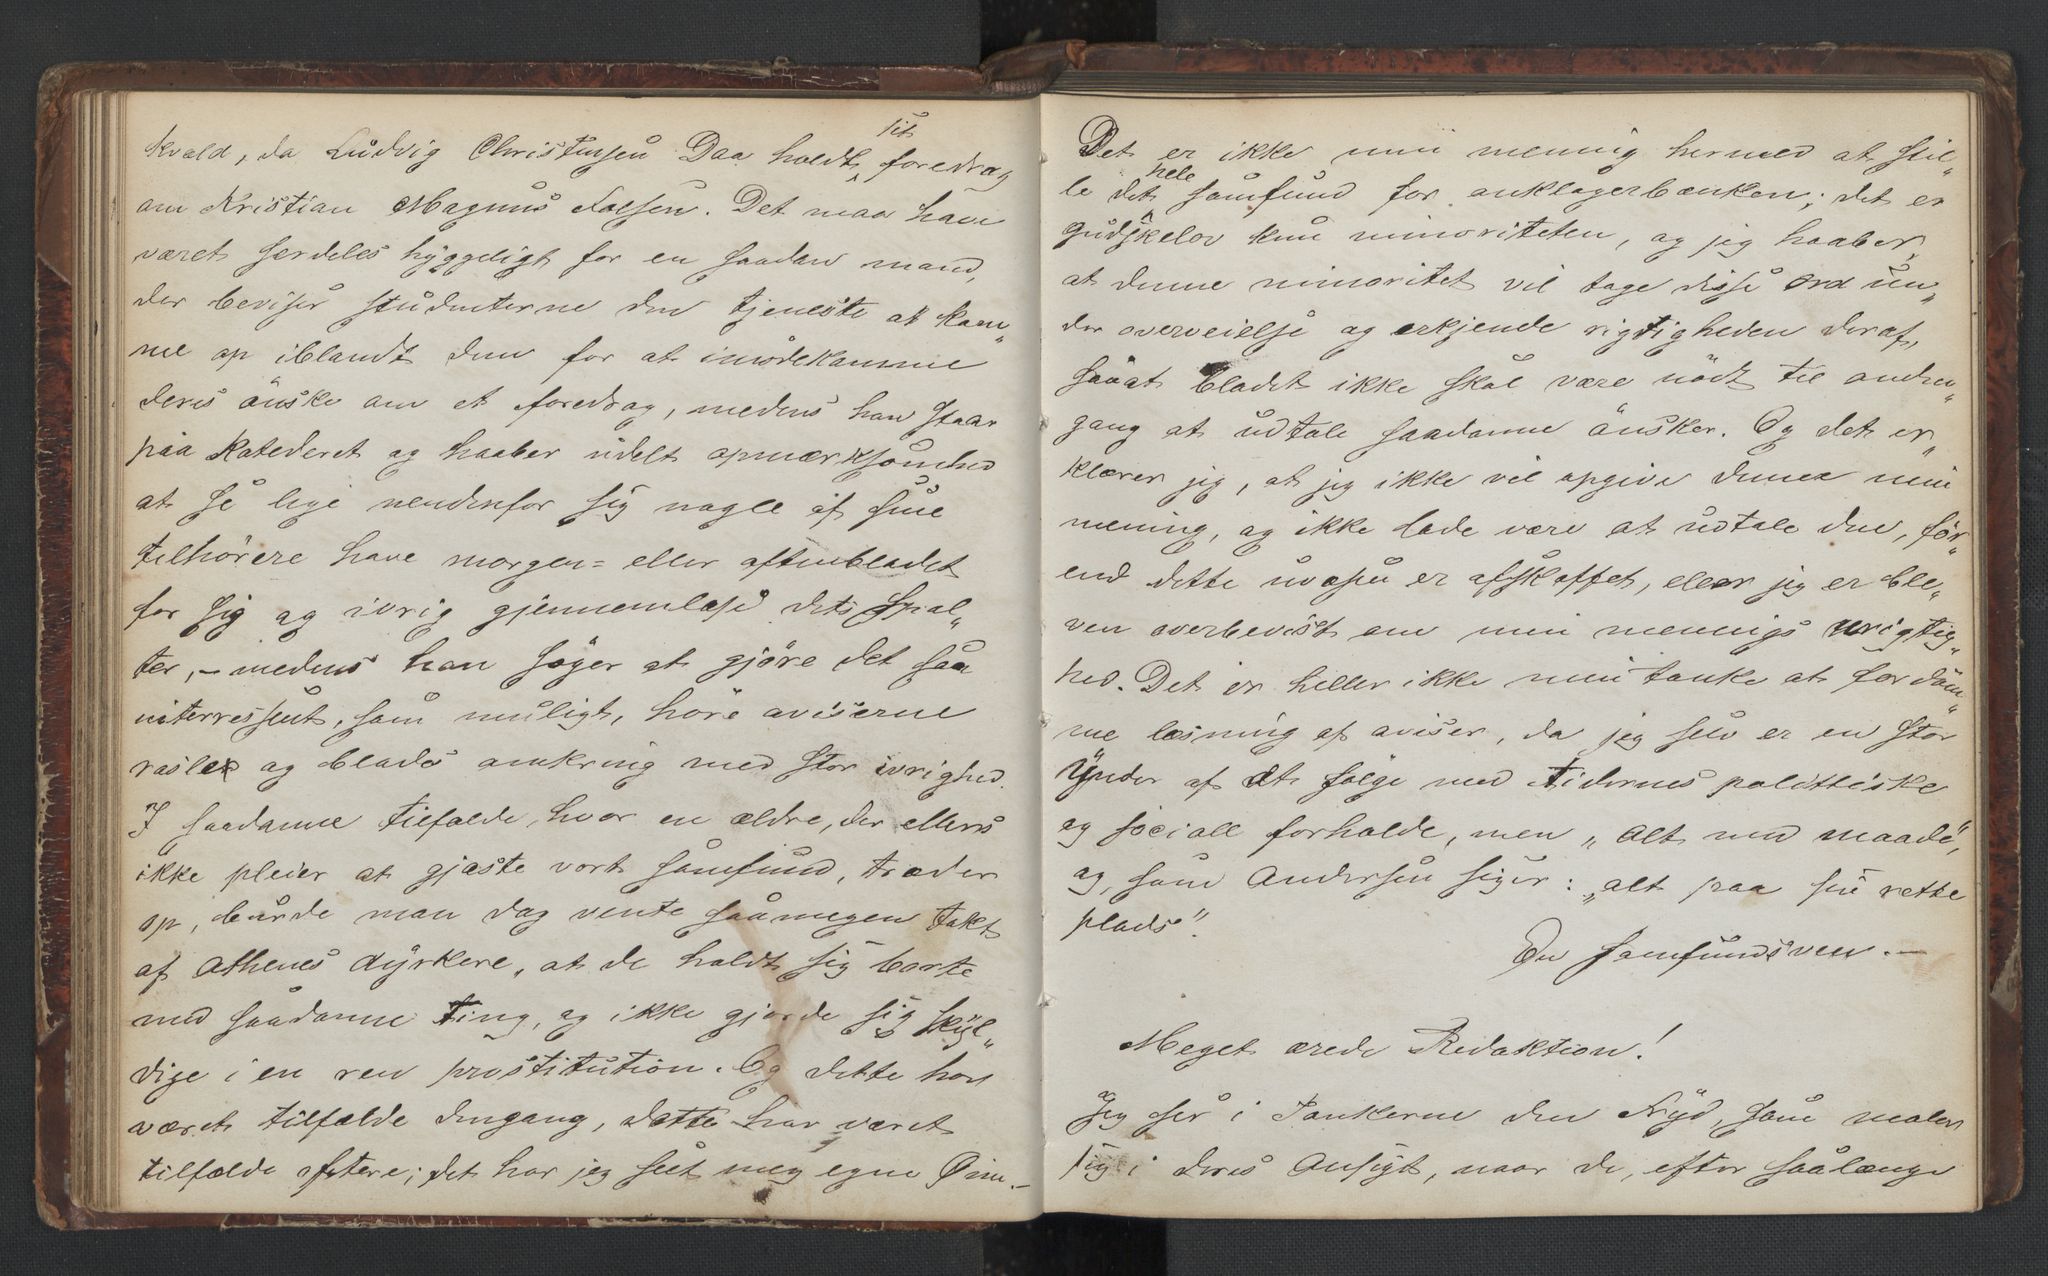 kvæld, da Ludvig Christensen Daa holdt sit foredrag
om Kristian Magnus Falsen. Det maa have
været særdeles hyggeligt for en saadan mand,
der beviser studenterne den tjeneste at kom„
me op iblandt dem for at imødekomme
deres önske om et foredrag, medens han staar
paa Katederet og haaber udelt opmærksomhed
at se lige nedenfor sig nogle af sine
tilhörere have morgen= eller aftenbladet
for sig og ivrig gjennemlæse dets spal„
ter, – medens han söger at gjöre det saa
interressent, som muligt, höre aviserne
rasle og blades omkring med stor ivrighed.
I saadanne tilfælde, hvor en ældre, der ellers
ikke pleier at gjæste vort samfund, træder
op, burde man dog vente saameget takt
af Athenes dyrkere, at de holdt sig borte
med saadanne ting, og ikke gjorde sig skyl„
dige i en ren prostitution. Og dette har
været tilfælde dengang, dette har været
tilfælde oftere; det har jeg seet meg egne Öine.–
Det er ikke min mening hermed at stil„
le det hele samfund for anklagerbænken; det er
gudskelov kun minoriteten, og jeg haaber,
at denne minoritet vil tage disse ord un„
der overveielse og erkjende rigtigheden deraf,
saaat bladet ikke skal være nödt til anden„
gang at udtale saadanne önsker. Og det er„
klærer jeg, at jeg ikke vil opgive denne min
mening, og ikke lade være at udtale den, för„
end dette uvæsen er afskaffet, eller jeg er ble„
ven overbevist om min menings urigtig„
hed. Det er heller ikke min tanke at fordöm„
me læsning af aviser, da jeg selv er en stor
Ynder af at fölge med tidernes polittiske
og sociall forholde, men „alt med maade“,
og, som Andersen siger: „alt paa sin rette
plads“.
En Samfundsven. –
Meget ærede Redaktion!
Jeg ser i Tankerne den Fryd, som maler
sig i deres Ansigt, naar de, efter saalænge